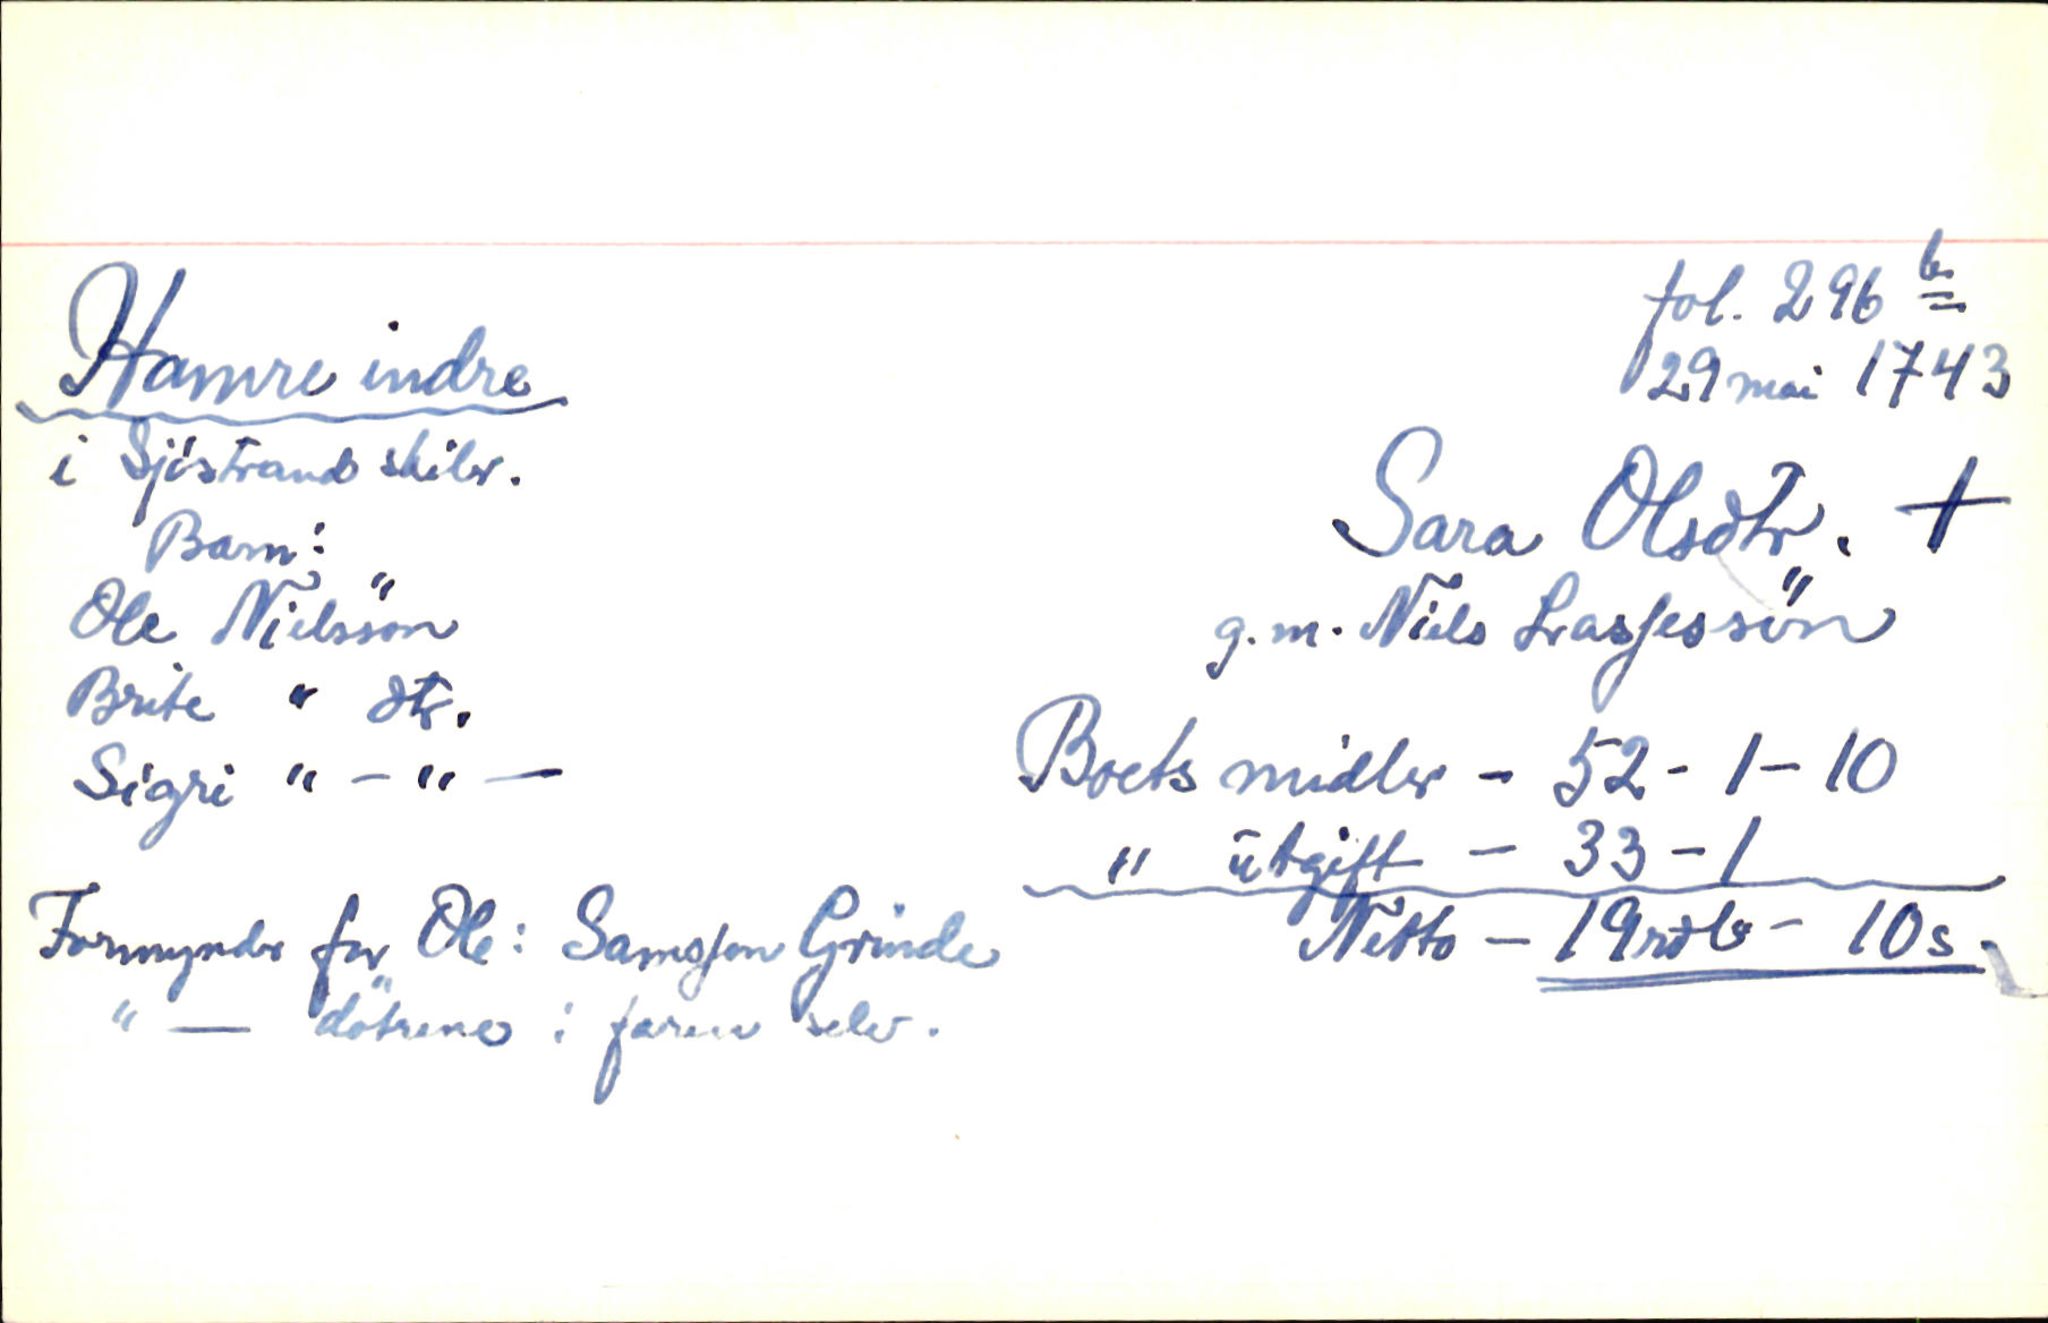 fol. 296 b
29 mai 1743
Hamre indre
i Sjöstrand skibr.
Sara Olsdtr. +
g.m. Niels Lassessön
Barn:
Ole Nielssön
Brite " dtr.
Sigri " - " -
Boets midler - 52 - 1 - 10
" utgift - 33 - 1
Netto - 19 rdlr - 10 s.
Formynder for Ole: Samson Grinde
" - dötrene : faren selv.